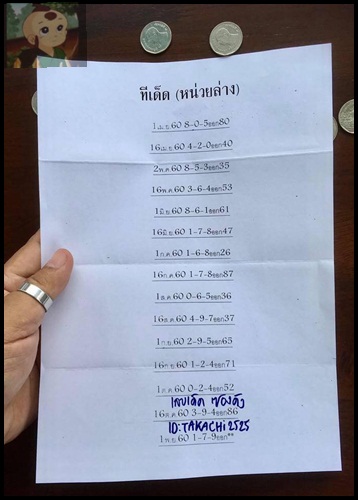 ทีเด็ด (หน่วยล่าง)
1เม.ย 60 8-0-5ออก80
16เม.ย 60 4-2-0ออก40
2พ.ค 60 8-5-3ออก35
16พ.ค 60 3-6-4ออก53
1มิ.ย 60 8-6-1ออก61
16มิ.ย 60 1-7-8ออก47
1ก.ค 60 1-6-8ออก26
16ก.ค 60 1-7-8ออก87
1ส.ค 60 0-6-5ออก36
16ส.ค 60 4-9-7ออก37
1ก.ย 60 2-9-5ออก65
16ก.ย 60 1-2-4ออก71
1ต.ค 60 0-2-4ออก52
เลขเด็ด ซองดัง
16ต.ค 60 3-9-4ออก86
ID:TAKACHi2525
1พ.ย 60 1-7-9ออก**